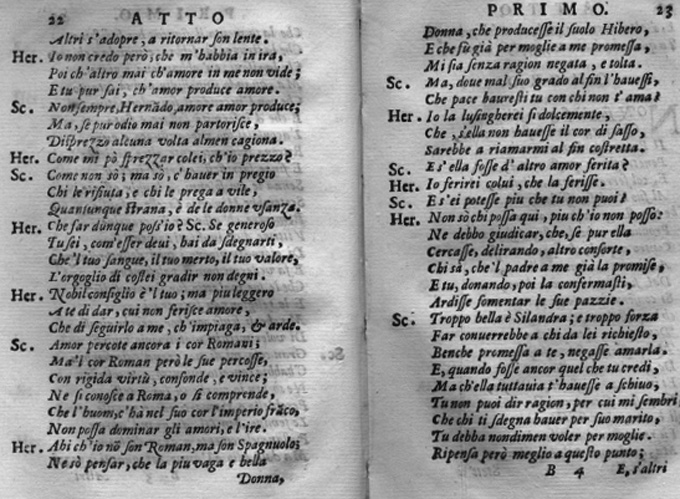 22 ATTO
Altri s'adopre, a ritornar son lente.
Her. Io non credo però; che m'habbia in ira,
Poi ch'altro mai ch'amore in me non vide;
E tu pur sai, ch'amor produce amore.
Sc. Non sempre, Hernãdo, amore amor produce;
Ma, se pur odio mai non partorisce,
Disprezzo alcuna volta almen cagiona.
Her. Come mi pò sprezzar colei, ch'io prezzo?
Sc. Come non sò; ma sò, c'hauer in pregio
Chi le rifiuta, e chi le prega a vile,
Quantunque strana, è de le donne vsanza.
Her. Che far dunque poss'io? Sc. Se generoso
Tu sei, com'esser deui, hai da sdegnarti,
Che'l tuo sangue, il tuo merto, il tuo valore,
L'orgoglio di costei gradir non degni.
Her. Nobil consiglio è'l tuo; ma piu leggero
A te di dar, cui non ferisce amore,
Che di seguirlo a me, ch'impiaga, & arde.
Sc. Amor percote ancora i cor Romani;
Ma'l cor Roman però le sue percosse,
Con rigida virtù, confonde, e vince;
Ne si conosce a Roma, o si comprende,
Che l'huom, c'hà nel suo cor l'imperio frãco,
Non possa dominar gli amori, e l'ire.
Her. Ahi ch'io nõ son Roman, ma son Spagnuolo;
Ne sò pensar, che la piu vaga e bella
Donna,
PRIMO. 23
Donna, che producesse il suolo Hibero,
E che fù già per moglie a me promessa,
Mi sia senza ragion negata, e tolta.
Sc. Ma, doue mal suo grado al fin l'hauessi,
Che pace hauresti tu con chi non t'ama?
Her. Io la lusingherei si dolcemente,
Che, s'ella non hauesse il cor di sasso,
Sarebbe a riamarmi al fin costretta.
Sc. E s'ella fosse d'altro amor ferita?
Her. Io ferirei colui, che la ferisse.
Sc. E s'ei potesse piu che tu non puoi?
Her. Non sò chi possa quì, piu ch'io non posso:
Ne debbo giudicar, che, se pur ella
Cercasse, delirando, altro conforte,
Chi sà, che'l padre a me già la promise,
E tu, donando, poi la confermasti,
Ardisse fomentar le sue pazzie.
Sc. Troppo bella è Silandra; e troppo forza
Far conuerrebbe a chi da lei richiesto,
Benche promessa a te, negasse amarla.
E, quando fosse ancor quel che tu credi,
Ma ch'ella tuttauia t'hauesse a schiuo,
Tu non puoi dir ragion, per cui mi sembri
Che chi ti sdegna hauer per suo marito,
Tu debba nondimen voler per moglie.
Ripensa però meglio a questo punto;
B 4 E, s'altri